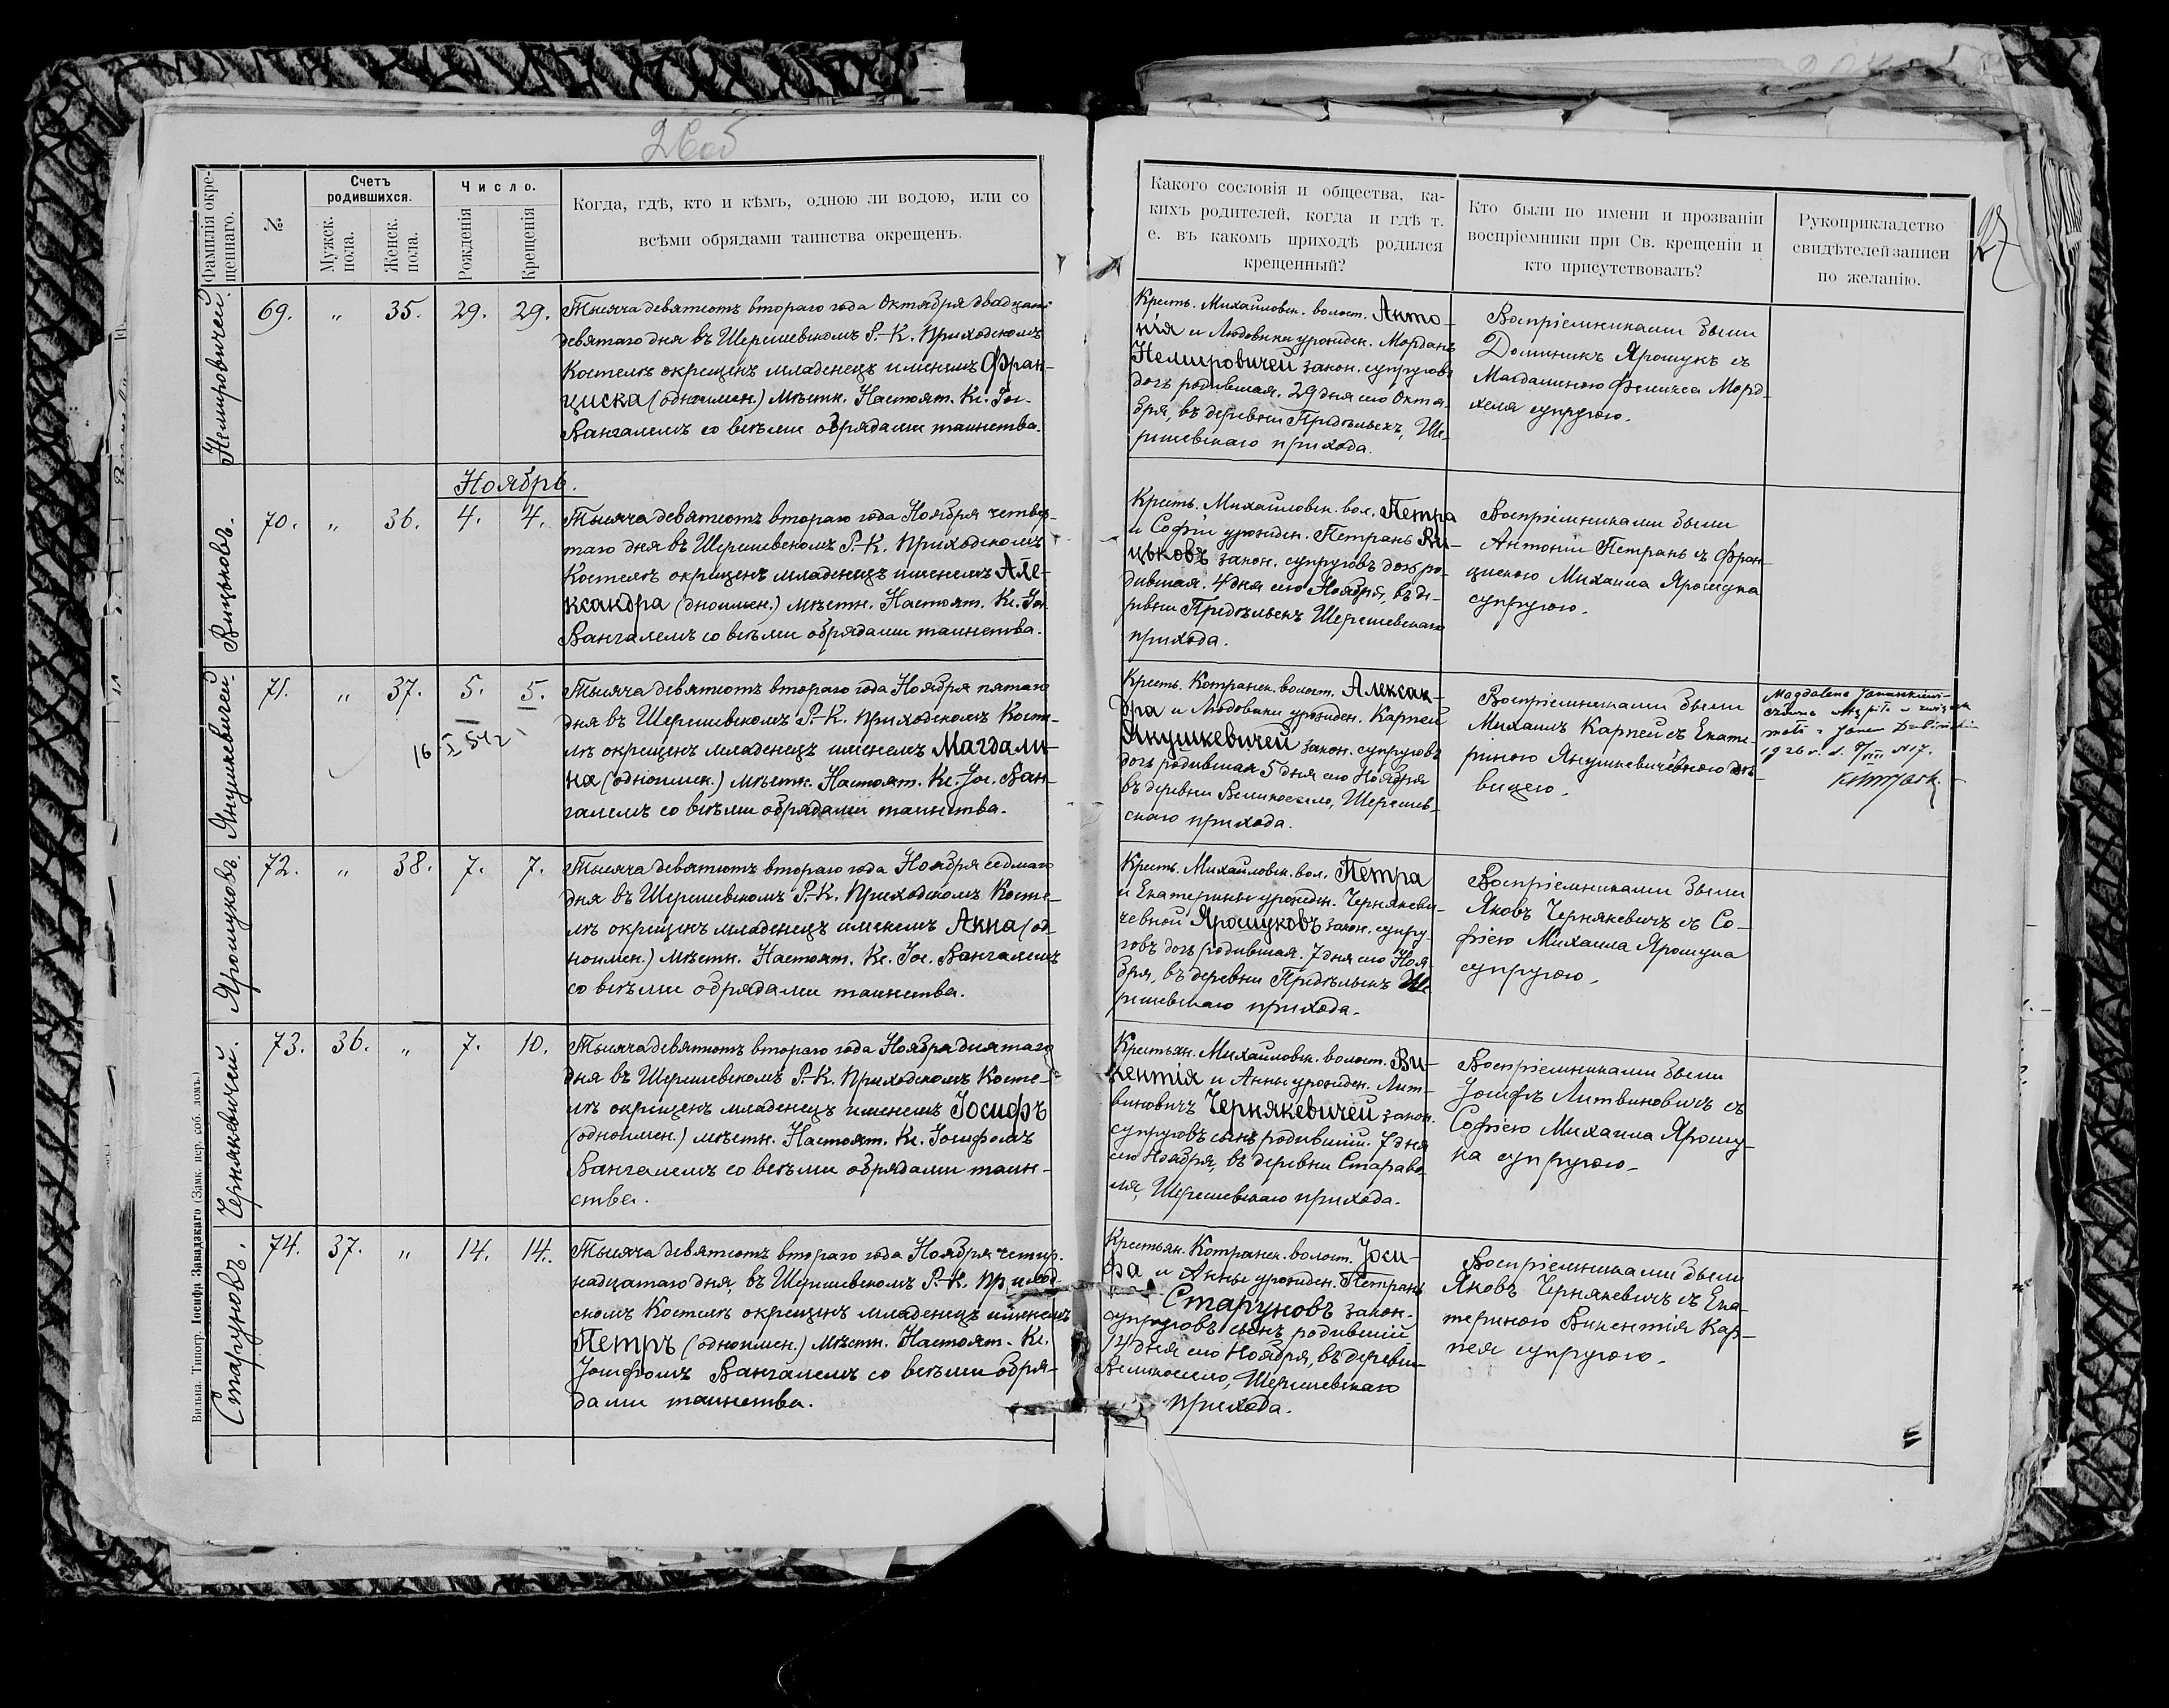 26об
27
Фамилія окре-
щеннаго.
№
Счетъ
родившихся.
Мужск.
пола.
Женск.
пола.
Число.
Рожденія
Крещенія
Когда, гдѣ, кто и кѣмъ, одною ли водою, или со
всѣми обрядами таинства окрещенъ.
Какого сословія и общества, ка-
кихъ родителей, когда и гдѣ т.
е. въ какомъ приходѣ родился
крещенный?
Кто были по имени и прозванію
воспріемники при Св. крещеніи и
кто присутствовалъ?
Рукоприкладство
свидѣтелей записи
по желанію.
Немировичей.
69. „ 35. 29. 29.
Тысяча девятсотъ втораго года Октября двадцать
девятаго дня въ Шерешевскомъ Р.-К. Приходскомъ
Костелѣ окрещенъ младенецъ именемъ Фран-
циска (одноимен.) Мѣстн. Настоят. Кс. Іос.
Вангалемъ со всѣми обрядами таинства.
Крестъ. Михайловск. волост. Анто-
нія и Людовики урожден.Морданъ
Немировичей закон. супруговъ
дочь родившая. 29 дня сего Октя-
бря, въ деревни Придѣльехъ, Ше-
решевскаго прихода.
Воспріемниками были
Доминикъ Ярошукъ съ
Магдаленою Феликса Морд-
хеля супругою.
Ноябрь.
Вицьковъ.
70. „ 36. 4. 4.
Тысяча девятсотъ втораго года Ноября четвер-
таго дня въ Шерешевскомъ Р.-К. Приходскомъ
Костелѣ окрещенъ младенецъ именемъ Але-
ксандра (дноимен.) мѣстн. Настоят. Кс. Іос.
Вангалемъ со всѣми обрядами таинства.
Крестъ. Михайловск. вол. Петра
и Софіи урожден. Петрань Ви-
цьковъ закон. супруговъ дочь ро-
дившая. 4 дня сего Ноября, въ де-
ревни Придѣльехъ Шерешевскаго
прихода.
Воспріемниками были
Антоній Петрань съ Фран-
цискою Михаила Ярошука
супругою.
Янушкевичей.
71. „ 37. 5. 5.
16 I 542
Тысяча девятсотъ втораго года Ноября пятаго
дня въ Шерешевскомъ Р.-К. Приходскомъ Косте-
лѣ окрещенъ младенецъ именемъ Магдали-
на (одноимен.) Мѣстн. Настоят. Кс. Іос. Ван-
галемъ со всѣми обрядами таинства.
Крестъ. Котранск. волост. Алексан-
дра и Людовики урожден. Карпей
Янушкевичей закон. супруговъ
дочь родившая 5 дня сего Ноября
въ деревни Великосело, Шерешев-
скаго прихода.
Воспріемниками были
Михаилъ Карпей съ Екате-
риною Янушкевичевною дѣ-
вицею.
Magdalena Januszkiewi-
czówna wstąpiła w związek
małż. z Janem
1926 r. d. 8/VII N 17.
Ярошуковъ.
72. „ 38. 7. 7.
Тысяча девятсотъ втораго года Ноября седмаго
дня въ Шерешевскомъ Р.-К. Приходскомъ Косте-
лѣ окрещенъ младенецъ именемъ Анна (од-
ноимен.) Мѣстн. Настоят. Кс. Іос. Вангалемъ
со всѣми обрядами таинства.
Крестъ. Михайловск. вол. Петра
и Екатерины урожден. Чернякеви-
чевной Ярошуковъ закон. супру-
говъ дочь родившая. 7 дня сего Ноя-
бря, въ деревни Придѣльехъ Ше-
решевскаго прихода.
Воспріемниками были
Яковъ Чернякевичъ съ Со-
фіею Михаила Ярошука
супругою.
Чернякевичей.
73. 36. „ 7. 10.
Тысяча девятсотъ втораго года Ноября дсятаго
дня въ Шерешевскомъ Р.-К. Приходскомъ Косте-
лѣ окрещенъ младенецъ именемъ Іосифъ
(одноимен.) мѣстн. Настоят. Кс. Іосифомъ
Вангалемъ со всѣми обрядами таин-
ства.
Крестьян. Михайловск. волост. Ви-
кентія и Анны урожден. Лит-
виновичъ Чернякевичей закон.
супруговъ сынъ родившій. 7 дня
сего Ноября, въ деревни Старово-
ля, Шерешевскаго прихода.
Воспріемниками были
Іосифъ Литвиновичъ съ
Софіею Михаила Ярошу-
ка супругою.
Старуновъ.
74. 37. „ 14. 14.
Тысяча девятсотъ втораго года Ноября четыр-
надцатаго дня, въ Шерешевскомъ Р.-К. Приход-
скомъ Костелѣ окрещенъ младенецъ именемъ
Петръ (одноимен.) Мѣстн. Настоят. Кс.
Іосифомъ Вангалемъ со всѣми обря-
дами таинства.
Крестьян. Котранск. волост. Іоси-
фа и Анны урожден. Петрань
Старуновъ закон.
супруговъ сынъ родившій
14 дня сего Ноября, въ деревни
Великосело, Шерешевскаго
прихода.
Воспріемниками были
Яковъ Чернякевичъ съ Ека-
териною Викентія Кар-
пея супругою.
Вильна. Типогр. Іосифа Завадзкаго (Замк. пер. соб. домъ.)